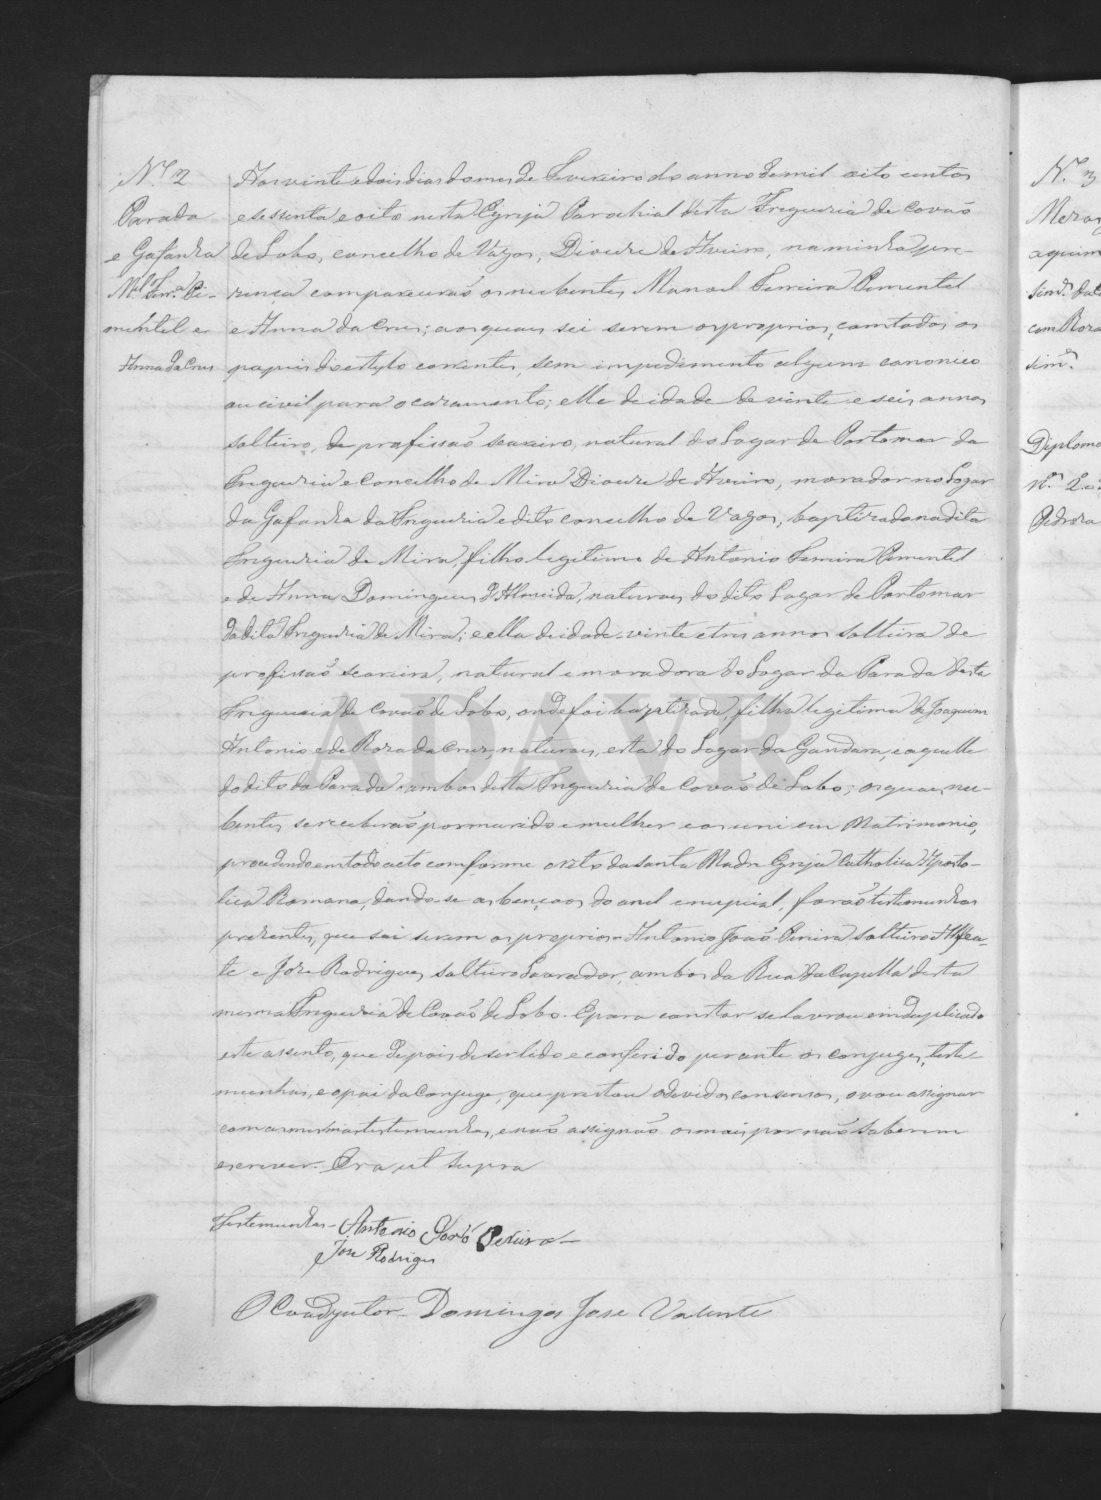 N.º 2
Parada
e Gafanha
M.el Ferr.a Pi-
mentel e
Anna da Cruz
Aos vinte e dois dias do mes de Fevereiro do anno de mil oito centos
e sessenta e oito nesta Egreja Parochial desta Freguezia de Covão
de Lobo, concelho de Vagos, Diocese de Aveiro, na minha pre-
zença compareceraõ os nubentes Manoel Ferreira Pimentel
e Anna da Cruz; aos quaes sei serem os proprios, com todos os
papeis do estylo correntes, sem impedimento algum canonico
ou civil para o cazamento; elle de idade de vinte e seis annos
solteiro, de profissaõ seareiro, natural do Logar de Portomar da
Freguezia e Concelho de Mira Diocese de Aveiro, morador no Logar
da Gafanha da Freguezia e dito concelho de Vagos, baptizado na dita
Freguezia de Mira, filho legitimo de Antonio Ferreira Pimentel
e de Anna Domingues d'Almeida, naturaes do dito Logar de Portomar
da dita Freguezia de Mira; e ella de idade vinte e tres annos solteira de
profissaõ seareira, natural e moradora do Logar da Parada desta
Freguezia de Covaõ de Lobo, onde foi baptizada, filha legitima de Joaquim
Antonio e de Roza da Cruz, naturaes, esta do Logar da Gandara, e aquelle
do dito da Parada ambos desta Freguezia de Covaõ de Lobo; os quaes nu-
bentes se receberaõ por marido e mulher e os uni em Matrimonio,
procedendo em todo acto comforme o rito da Santa Madre Egreja Catholica Aposto-
lica Romana, dando-se as bençaos do anel e nupcial, foraõ testemunhas
prezentes, que sei serem os proprios Antonio Joaõ Pereira solteiro Alfea-
te e Joze Rodrigues solteiro Lavrador, ambos da Rua da Capella desta
mesma Freguezia de Covaõ de Lobo. E para constar se lavrou em duplicado
este assento, que depois de ser lido e conferido perante os conjuges, teste-
munhas, e o pai da Conjuge, que prestou o devido consenso, o vou assignar
com as mesmas testemunhas, e naõ assignaõ os mais por naõ saberem
escrever. Era ut supra
Testemunhas - Antonio Joaõ Pereira
Joze Rodrigues
O Coadjutor - Domingos Joze Valente
ADAVR
N.º 3
sim.
Diploma
Pedreira